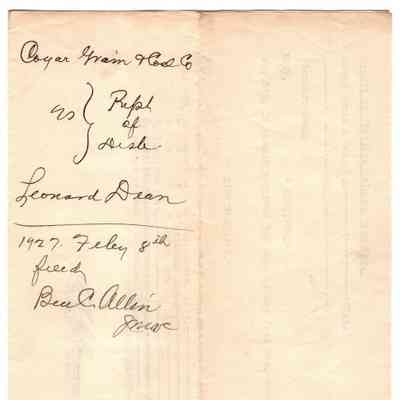 Cogar Grain & Coal Co
vs } Rept
of
Leonard Dean
1927. Feby 8th
filed
Ben C. Allin